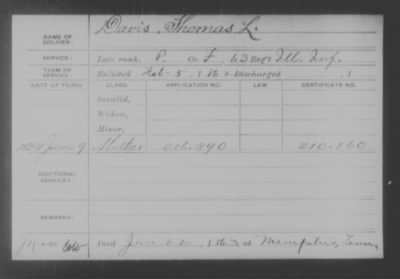 NAME OF SOLDIER: Davis, Thomas L.
SERVICE: Late rank, P. Co. F, 63 Reg't Ill. Inf.
TERM OF SERVICE: Enlisted Feb 5, 1862 Discharged , 1
DATE OF FILING. CLASS. APPLICATION NO. LAW. CERTIFICATE NO.
Invalid,
Widow,
Minor,
June 9 Mother 316.390 210.160
ADDITIONAL SERVICES:
REMARKS:
Died Jan 22, 1863, at Memphis, Tenn.